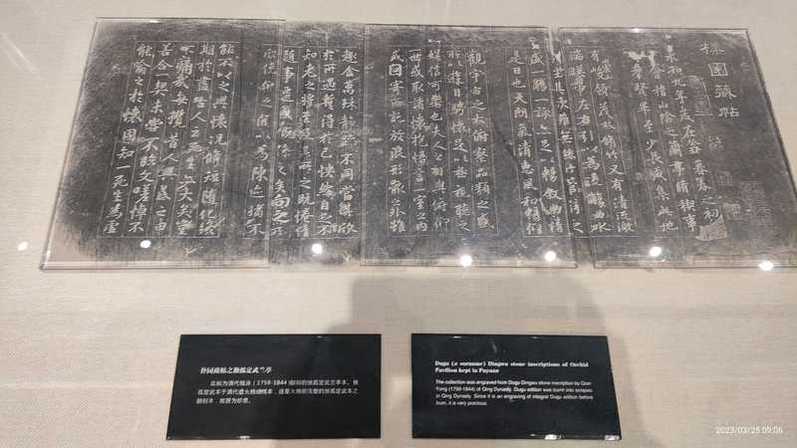 樸園藏帖
永和九年歲在癸丑暮春之初
會稽山陰之蘭亭脩稧事
羣賢畢至少長咸集此地
峻領茂林脩竹又有清流激
湍暎帶左右引以為流觴曲水
列坐其次雖無絲竹管弦之
盛一觴一詠亦足以暢敘幽情
是日也天朗氣清惠風和暢仰
觀宇宙之大俯察品類之盛
所以遊目騁懷足以極視聽之
娛信可樂也夫人之相與俯仰
一世或取諸懷抱悟言一室之內
或因寄所託放浪形骸之外雖
趣舍萬殊靜躁不同當其欣
於所遇蹔得於己怏然自足不
知老之將至及其所之既惓情
隨事遷感慨係之矣向之所
欣俛仰之間以為陳迹猶不
能不以之興懷況脩短隨化終
期於盡古人云死生亦大矣豈
不痛哉每攬昔人興感之由
若合一契未嘗不臨文嗟悼不
能喻之於懷固知一死生為虛
朴园藏帖之独孤定武兰亭
此帖为清代钱泳（1759-1844）摹刻的独孤定武兰亭本。独
孤定武本于清代遭火焚烧残本，这是火焚前完整的独孤定武本之
翻刻本，故颇为珍贵。
Dugu (a surname) Dingwu stone inscriptions of Orchid
Pavilion kept in Puyuan
The collection was engraved from Dugu Dingwu stone inscription by Qian
Yong (1759-1844) of Qing Dynasty. Dugu edition was burnt into scraps
in Qing Dynasty. Since it is an engraving of integral Dugu edition before
burn, it is very precious.
2023/03/25 09:06